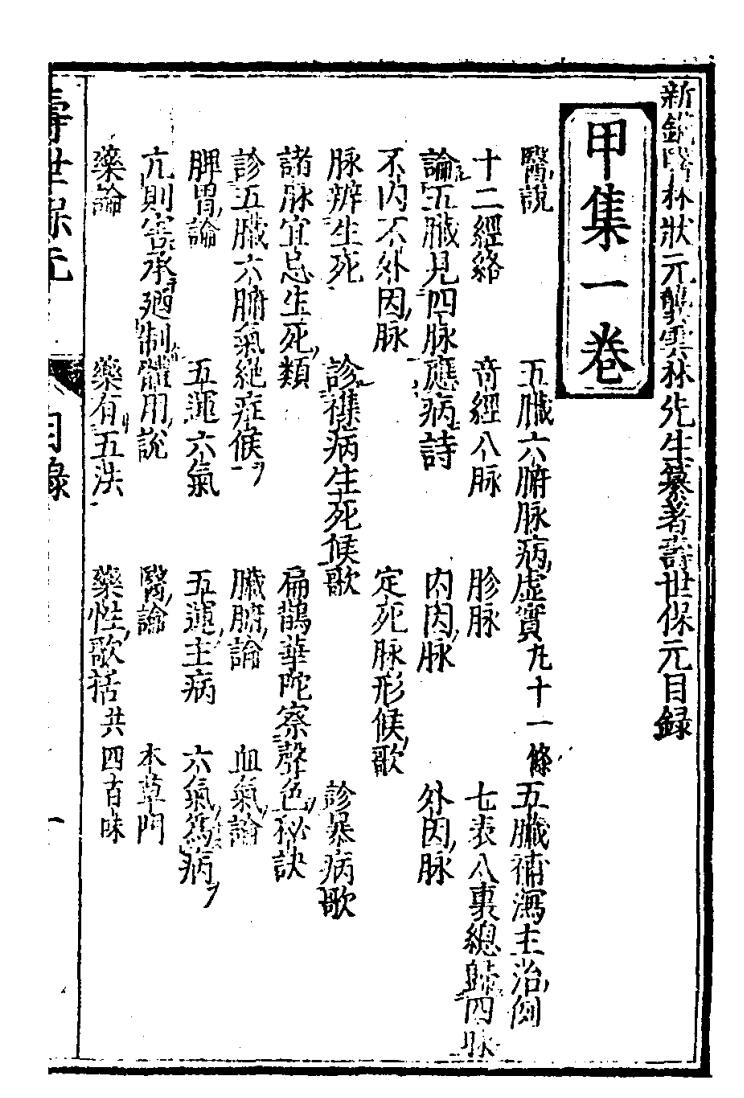 新鋟醫林狀元龔雲林先生纂著壽世保元目録
甲集一卷
醫說 五臟六腑脉病虛實九十一條 五臟補瀉主治例
十二經絡 奇經八脉 胗脉 七表八裏總歸四脉
論五臟見四脉應病詩 内因脉 外因脉
不内不外因脉 定死脉形候歌
脉辨生死 診襍病生死候歌 診暴病歌
諸脉宜忌生死類 扁鵲華陀察聲色秘訣
診五臟六腑氣絶症候 臟腑論 血氣論
脾胃論 五運六氣 五運主病 六氣為病
亢則害承廼制體用說 醫論 本草門
藥論 藥有五法 藥性歌括共四百味
壽世保元
目錄
一